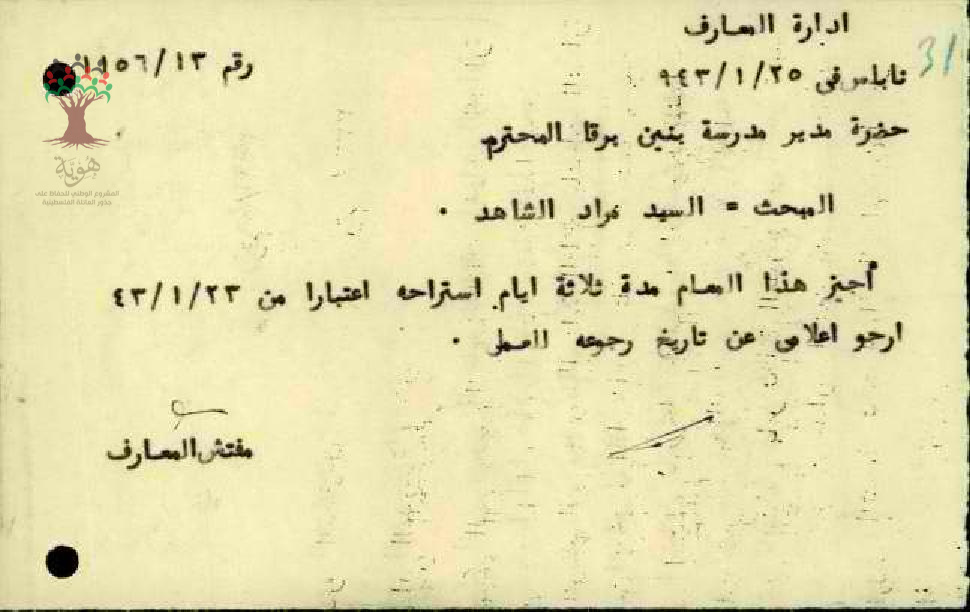 ادارة المعارف
نابلس في ٩٤٣/١/٢٥
رقم ١١٥٦/١٣
31
حضرة مدير مدرسة بنين برقا المحترم
المبحث = السيد مراد الشاهد .
أجيز هذا المعلم مدة ثلاثة ايام استراحه اعتبارا من ٤٣/١/٢٣
ارجو اعلامي عن تاريخ رجوعه للعمل .
مفتش المعارف
هوية
المشروع الوطني للحفاظ على
جذور العائلة الفلسطينية